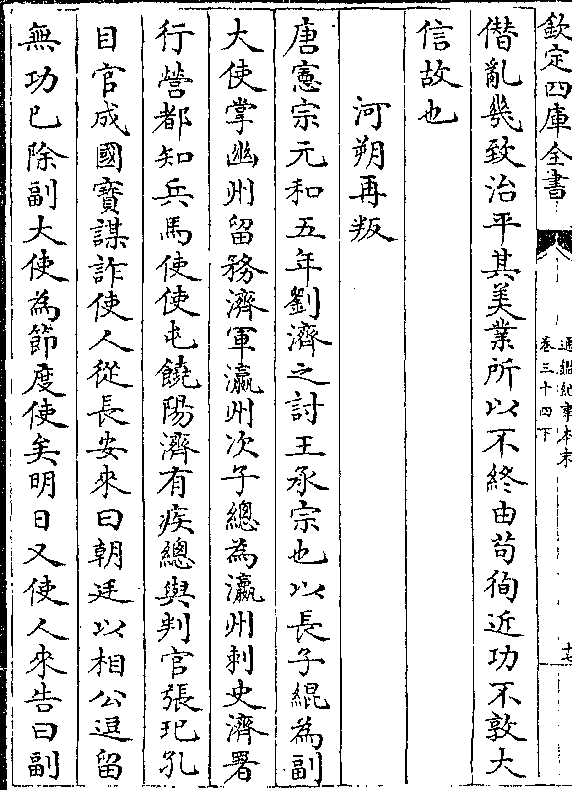 欽定四庫全書
通鑑紀事本末
卷三十四下
十七
僭亂幾致治平其美業所以不終由苟徇近功不敦大
信故也
河朔再叛
唐憲宗元和五年劉濟之討王承宗也以長子緄為副
大使掌幽州留務濟軍瀛州次子總為瀛州刺史濟署
行營都知兵馬使使屯饒陽濟有疾總與判官張玘孔
目官成國寳謀詐使人從長安來曰朝廷以相公逗留
無功已除副大使為節度使矣明日又使人來告曰副